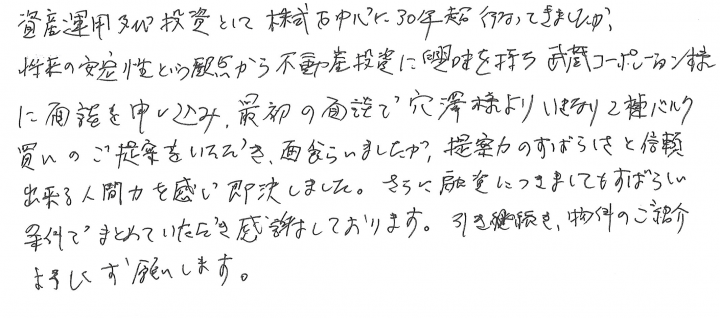 資産運用及び投資として株式を中心に30年超行なってきましたが、
将来の安定性という観点から不動産投資に興味を持ち武蔵コーポレーション様
に面談を申し込み、最初の面談で穴澤様よりいきなり2棟バルク
買いのご提案をいただき、面食らいましたが、提案力のすばらしさと信頼
出来る人間力を感じ即決しました。さらに融資につきましてもすばらしい
条件でまとめていただき感謝しております。引き継続き、物件のご紹介
よろしくお願いします。